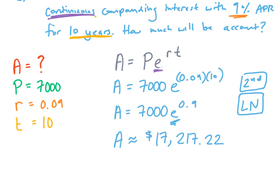 Continuous compounding interest with 9% APR
for 10 years. How much will be account?
A = ?
P = 7000
r = 0.09
t = 10
A = Pe^rt
A = 7000 e^(0.09)(10)
A = 7000 e^0.9
A ≈ $17,217.22
2nd
LN